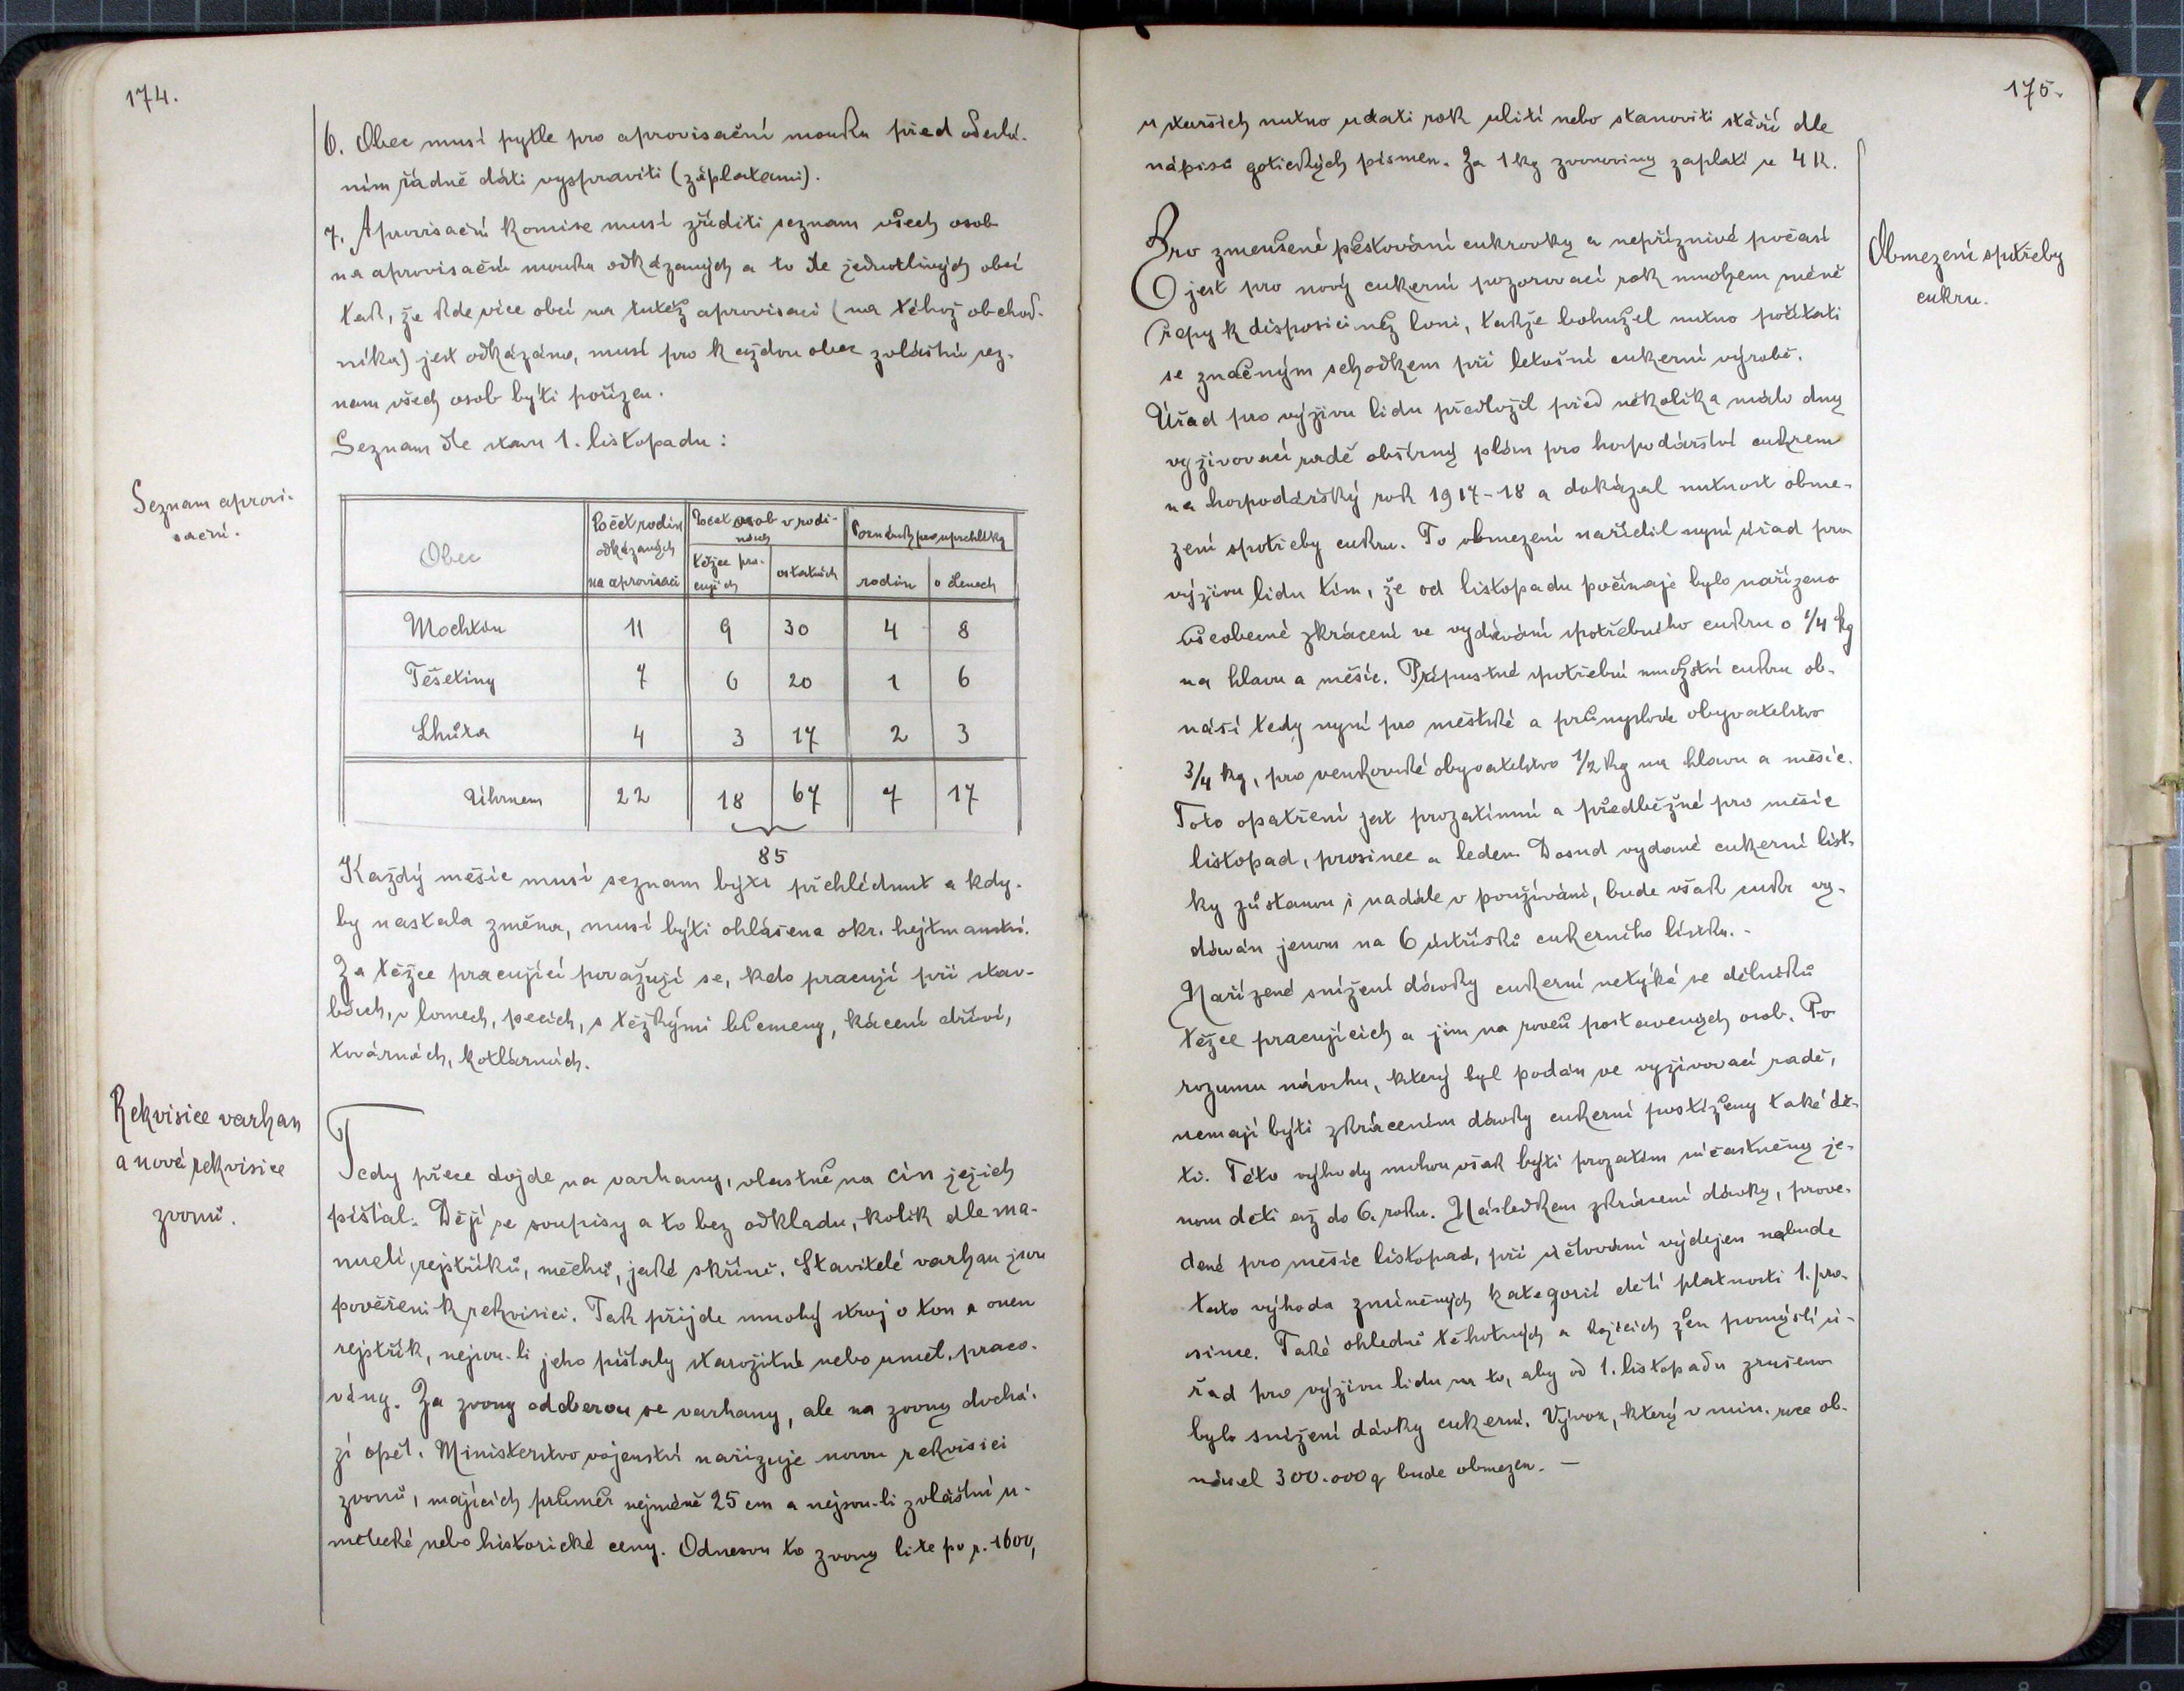 174.
6. Obec musí pytle pro aprovisační mouku před odesla-
ním řádně dáti vyspraviti (záplatami).
7. Aprovisační komise musí zříditi seznam všech osob
na aprovisační mouku odkázaných a to dle jednotlivých obcí
tak, že kde více obcí na tutéž aprovisaci (na téhož obchod-
níka) jest odkázáno, musí pro každou obec zvláštní sez-
nam všech osob býti pořízen.
Seznam dle stavu 1. listopadu:
Seznam aprovi-
sační.
Obec
Počet rodin
odkázaných
na aprovisaci
Počet osob v rodi-
nách
těžce pra-
cujících
ostatních
rodin
o členech
Mochtín 11 9 30 4 8
Těšetiny 7 6 20 1 6
Lhůta 4 3 17 2 3
Úhrnem 22 18 67 7 17
85
Každý měsíc musí seznam býti přehlédnut a kdy-
by nastala změna, musí býti ohlášena okr. hejtmanství.
Za těžce pracující považují se, kdo pracují při stav-
bách, v lomech, pecích, s těžkými břemeny, kácení dříví,
továrnách, kotlárnách.
Rekvisice varhan
a nová rekvisice
zvonů.
Tedy přece dojde na varhany, vlastně na cín jejich
píšťal. Dějí se soupisy a to bez odkladu, kolik dle ma-
nuelí, rejstříků, měchů, jaké skříně. Stavitelé varhan jsou
pověřeni k rekvisici. Tak přijde mnohý stroj o ton a onen
rejstřík, nejsou-li jeho píšťaly starožitné nebo uměl. praco-
vány. Za zvony odberou se varhany, ale na zvony dochá-
zí opět. Ministerstvo vojenství nařizuje novou rekvisici
zvonů, majících průměr nejméně 25 cm a nejsou-li zvláštní u-
mělecké nebo historické ceny. Odnesou to zvony lité po r. 1600,
175.
u starších nutno udati rok ulití nebo stanoviti stáří dle
nápisů gotických písmen. Za 1 kg zvonoviny zaplatí se 4 K.
Obmezení spotřeby
cukru.
Pro zmenšené pěstování cukrovky a nepříznivé počasí
jest pro nový cukerní pozorovací rok mnohem méně
řepy k disposici než loni, takže bohužel nutno počítati
se značným schodkem při letošní cukerní výrobě.
Úřad pro výživu lidu předložil před několika málo dny
vyživovací radě obšírný plán pro hospodářství cukrem
na hospodářský rok 1917-18 a dokázal nutnost obme-
zení spotřeby cukru. To obmezení nařídil nyní úřad pro
výživu lidu tím, že od listopadu počínaje bylo nařízeno
všeobecné zkrácení ve vydávání spotřebního cukru o 1/4 kg
na hlavu a měsíc. Přípustné spotřební množství cukru ob-
náší tedy nyní pro městské a průmyslové obyvatelstvo
3/4 kg, pro venkovské obyvatelstvo 1/2 kg na hlavu a měsíc.
Toto opatření jest prozatímní a předběžné pro měsíc
listopad, prosinec a leden. Dosud vydané cukerní líst-
ky zůstanou i nadále v používání, bude však cukr vy-
dáván jenom na 6 ústřižků cukerního lístku. -
Nařízené snížení dávky cukerní netýká se dělníků
těžce pracujících a jim na roveň postavených osob. Po
rozumu návrhu, který byl podán ve vyživovací radě,
nemají býti zkrácením dávky cukerní postiženy také dě-
ti. Této výhody mohou však býti prozatím účastněny je-
nom děti až do 6. roku. Následkem zkrácení dávky, prove-
dené pro měsíc listopad, při účtování výdejen nabude
tato výhoda zmíněných kategorií dětí platnosti 1. pro-
since. Také ohledně těhotných a kojících žen pomýšlí ú-
řad pro výživu lidu na to, aby od 1. listopadu zrušeno
bylo snížení dávky cukerní. Vývoz, který v min. roce ob-
nášel 300.000 q bude obmezen. -